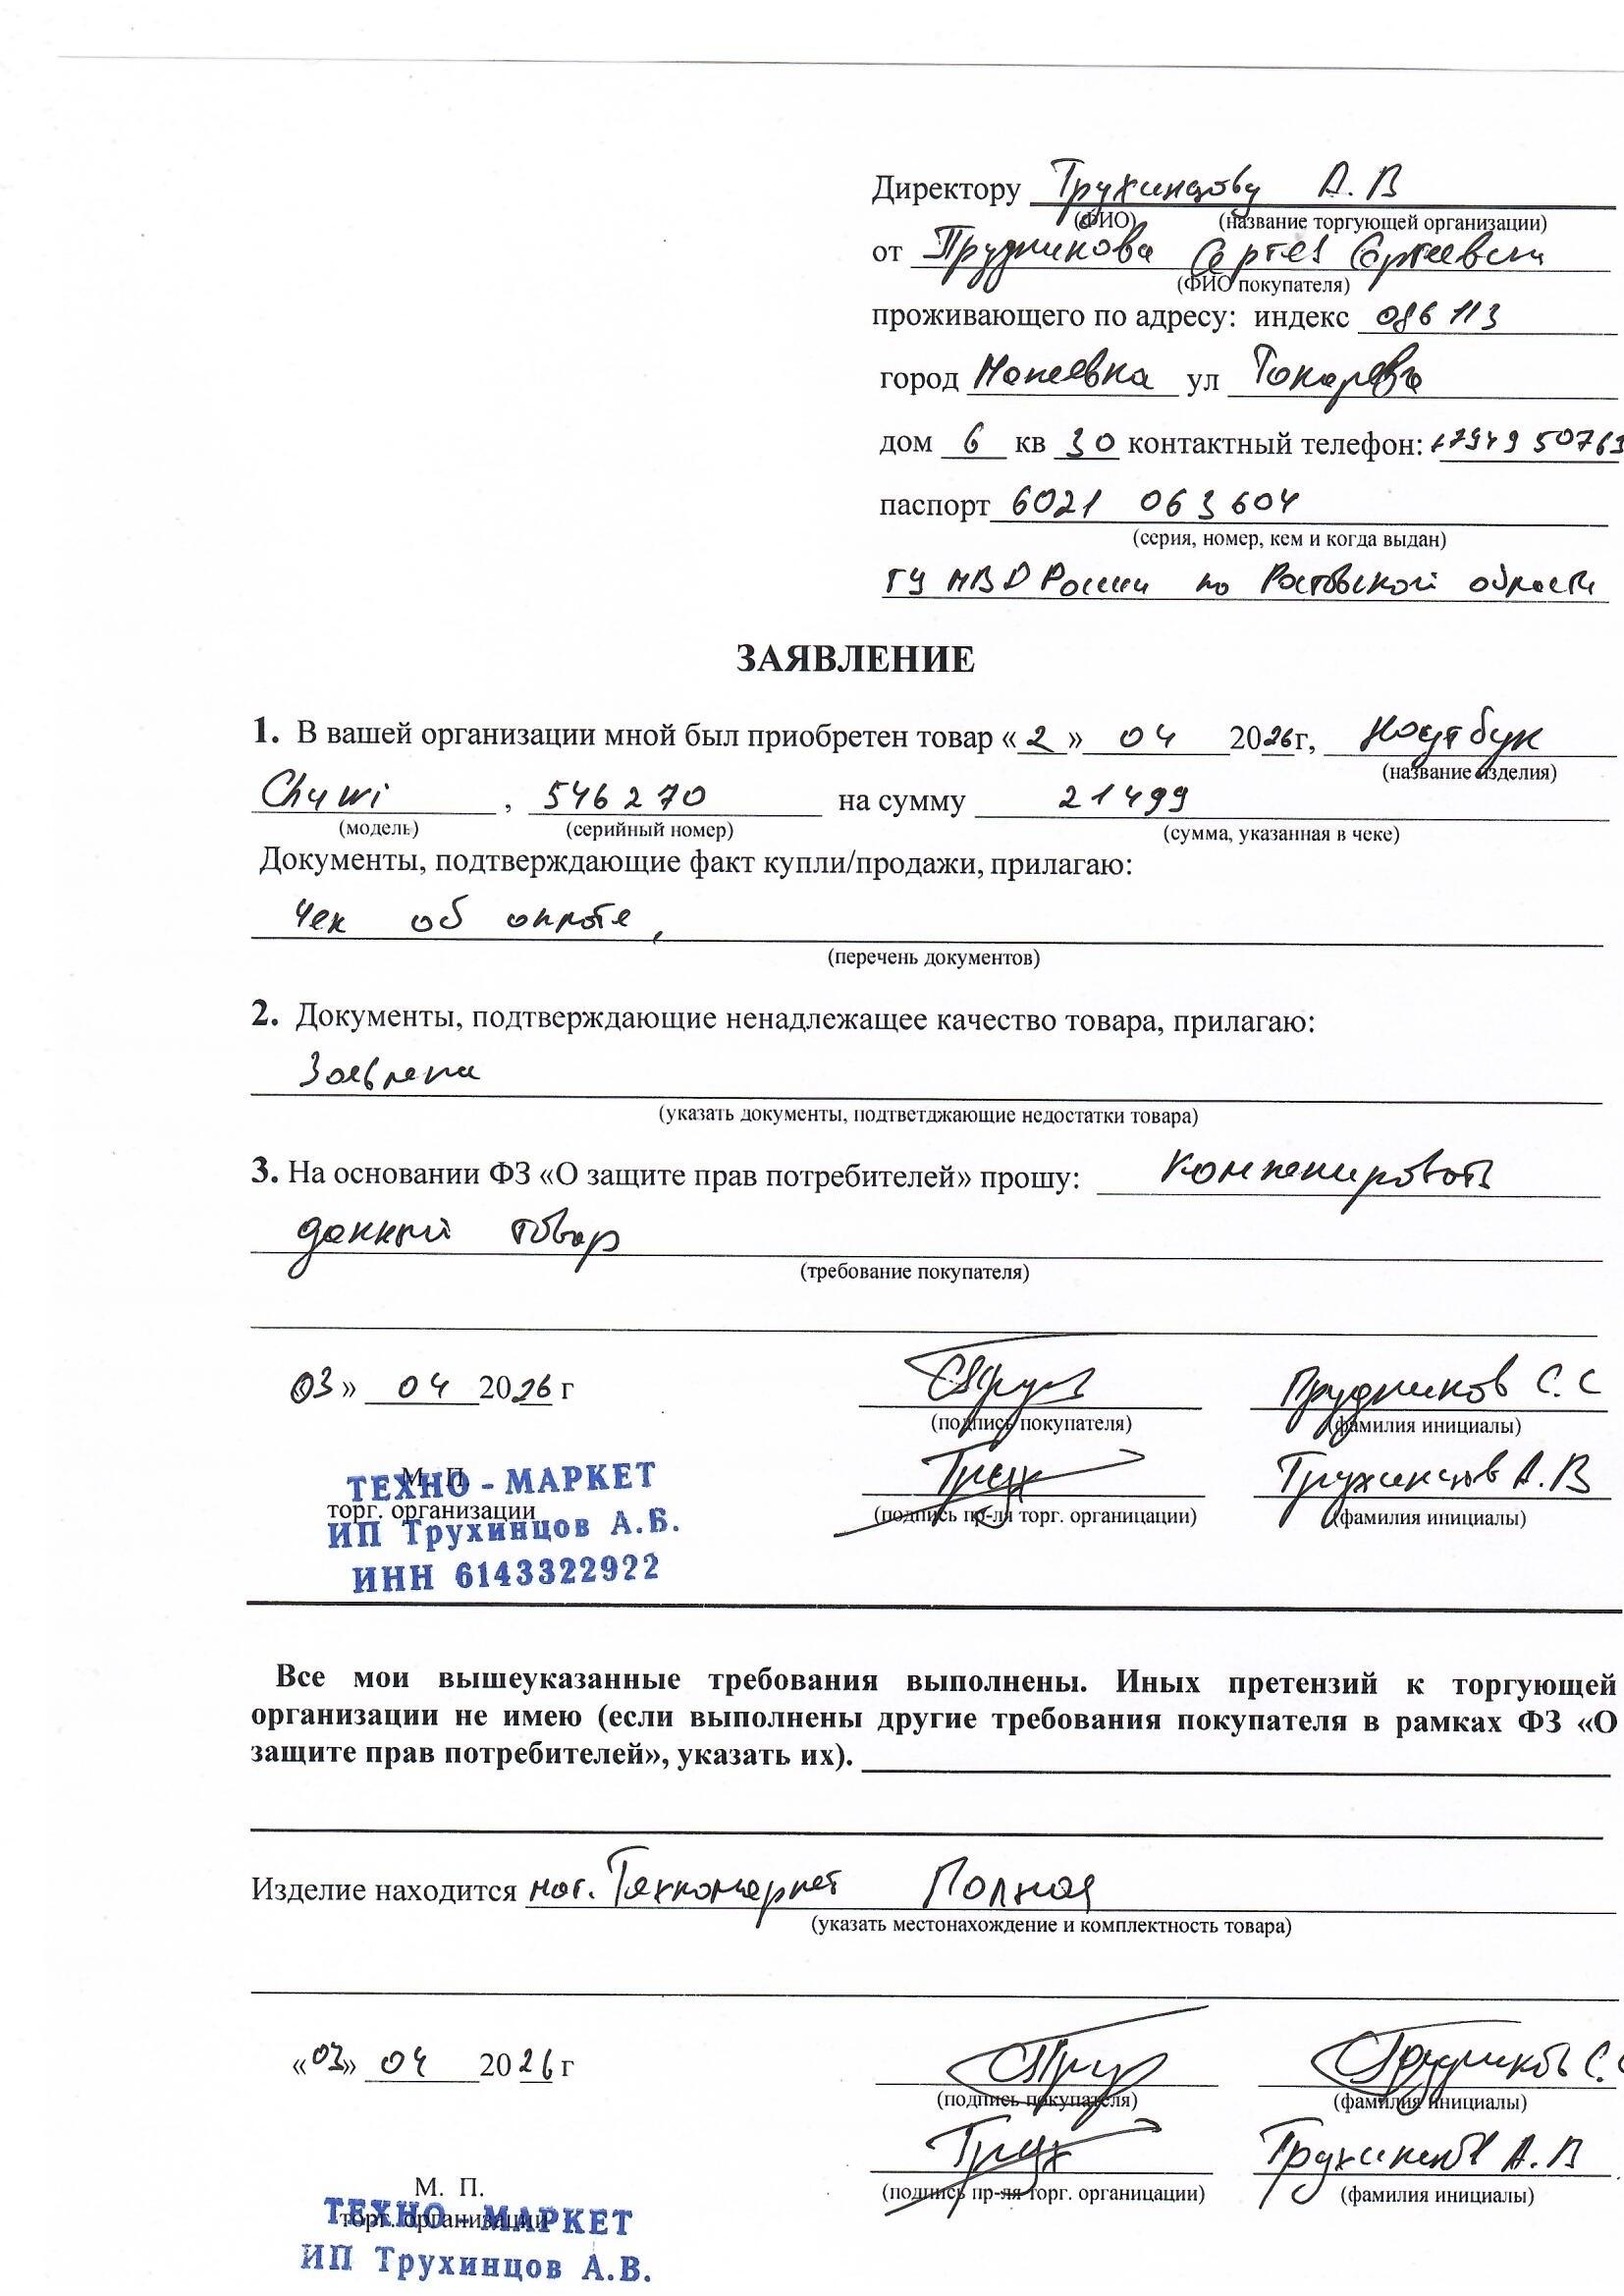 Директору Трухинцову А. В
(ФИО) (название торгующей организации)
от Прудникова Сергея Сергеевича
(ФИО покупателя)
проживающего по адресу: индекс 086 113
город Макеевка ул Токарева
дом 6 кв 30 контактный телефон: +7949 50763
паспорт 6021 063 604
(серия, номер, кем и когда выдан)
ГУ МВД России по Ростовской области
ЗАЯВЛЕНИЕ
1. В вашей организации мной был приобретен товар «2» 04 2026г, Ноутбук
(название изделия)
Chuwi , 546270 на сумму 21499
(модель) (серийный номер) (сумма, указанная в чеке)
Документы, подтверждающие факт купли/продажи, прилагаю:
Чек об оплате,
(перечень документов)
2. Документы, подтверждающие ненадлежащее качество товара, прилагаю:
Заявление
(указать документы, подтветджающие недостатки товара)
3. На основании ФЗ «О защите прав потребителей» прошу:
данный товар
(требование покупателя)
03» 04 2026 г Прудников С. С
(подпись покупателя) (фамилия инициалы)
М. П.
торг. организации
ТЕХНО - МАРКЕТ
ИП Трухинцов А.В.
ИНН 6143322922
Трухинцов А. В
(подпись пр-ля торг. органицации) (фамилия инициалы)
Все мои вышеуказанные требования выполнены. Иных претензий к торгующей
организации не имею (если выполнены другие требования покупателя в рамках ФЗ «О
защите прав потребителей», указать их).
Изделие находится маг. Техномаркет Полная
(указать местонахождение и комплектность товара)
«03» 04 2026 г Прудников С. С
(подпись покупателя) (фамилия инициалы)
Трухинцов А. В
(подпись пр-ля торг. органицации) (фамилия инициалы)
М. П.
торг. организации
ТЕХНО - МАРКЕТ
ИП Трухинцов А.В.